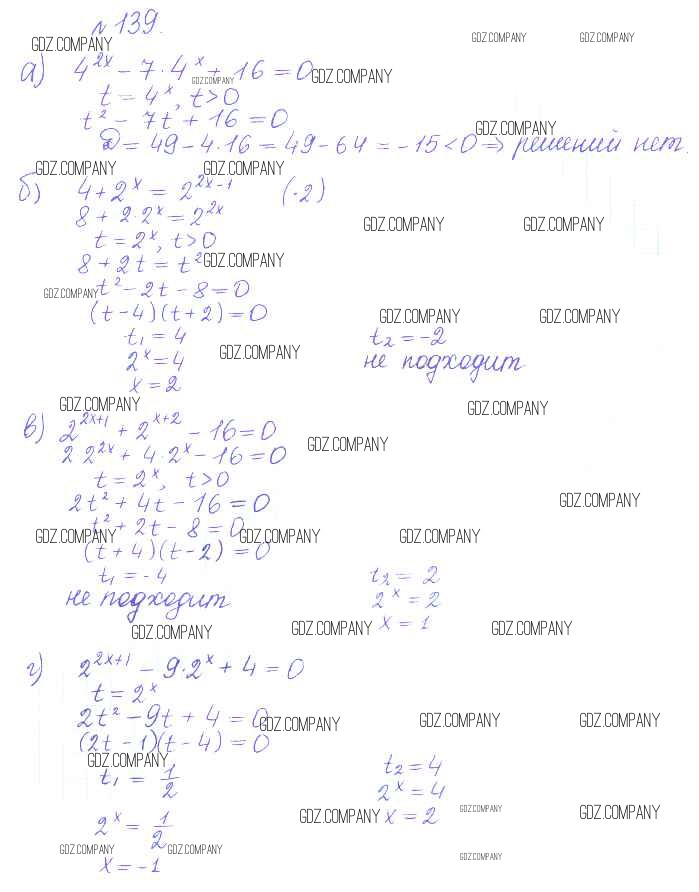 № 139.
GDZ.COMPANY GDZ.COMPANY GDZ.COMPANY
а) 4^2x − 7·4^x + 16 = 0 GDZ.COMPANY
GDZ.COMPANY
t = 4^x, t>0
t² − 7t + 16 = 0
GDZ.COMPANY
D = 49 − 4·16 = 49 − 64 = −15 < 0 ⇒ решений нет.
GDZ.COMPANY GDZ.COMPANY
б) 4 + 2^x = 2^2x−1 (·2)
8 + 2·2^x = 2^2x
GDZ.COMPANY GDZ.COMPANY
t = 2^x, t>0
8 + 2t = t² GDZ.COMPANY
GDZ.COMPANY t² − 2t − 8 = 0
(t − 4)(t + 2) = 0 GDZ.COMPANY GDZ.COMPANY
t₁ = 4 t₂ = −2
GDZ.COMPANY
2^x = 4 не подходит
x = 2
GDZ.COMPANY GDZ.COMPANY
в) 2^2x+1 + 2^x+2 − 16 = 0
GDZ.COMPANY
2 2^2x + 4·2^x − 16 = 0
t = 2^x, t>0
2t² + 4t − 16 = 0 GDZ.COMPANY
t² + 2t − 8 = 0
GDZ.COMPANY GDZ.COMPANY GDZ.COMPANY
(t + 4)(t − 2) = 0
t₁ = −4 t₂ = 2
не подходит 2^x = 2
x = 1
GDZ.COMPANY GDZ.COMPANY GDZ.COMPANY
г) 2^2x+1 − 9·2^x + 4 = 0
t = 2^x
2t² − 9t + 4 = 0 GDZ.COMPANY GDZ.COMPANY GDZ.COMPANY
(2t − 1)(t − 4) = 0
GDZ.COMPANY
t₁ = 1/2 t₂ = 4
2^x = 4
GDZ.COMPANY x = 2 GDZ.COMPANY GDZ.COMPANY
2^x = 1/2
GDZ.COMPANY GDZ.COMPANY GDZ.COMPANY
x = −1